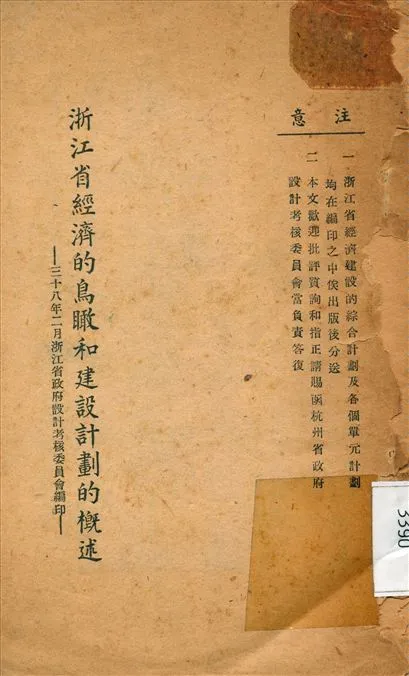 注意
一 浙江省經濟建設的綜合計劃及各個單元計劃
均在編印之中俟出版後分送
二 本文歡迎批評質詢和指正請賜函杭州省政府
設計考核委員會當負責答復
浙江省經濟的鳥瞰和建設計劃的概述
——三十八年二月浙江省政府設計考核委員會編印——
3390